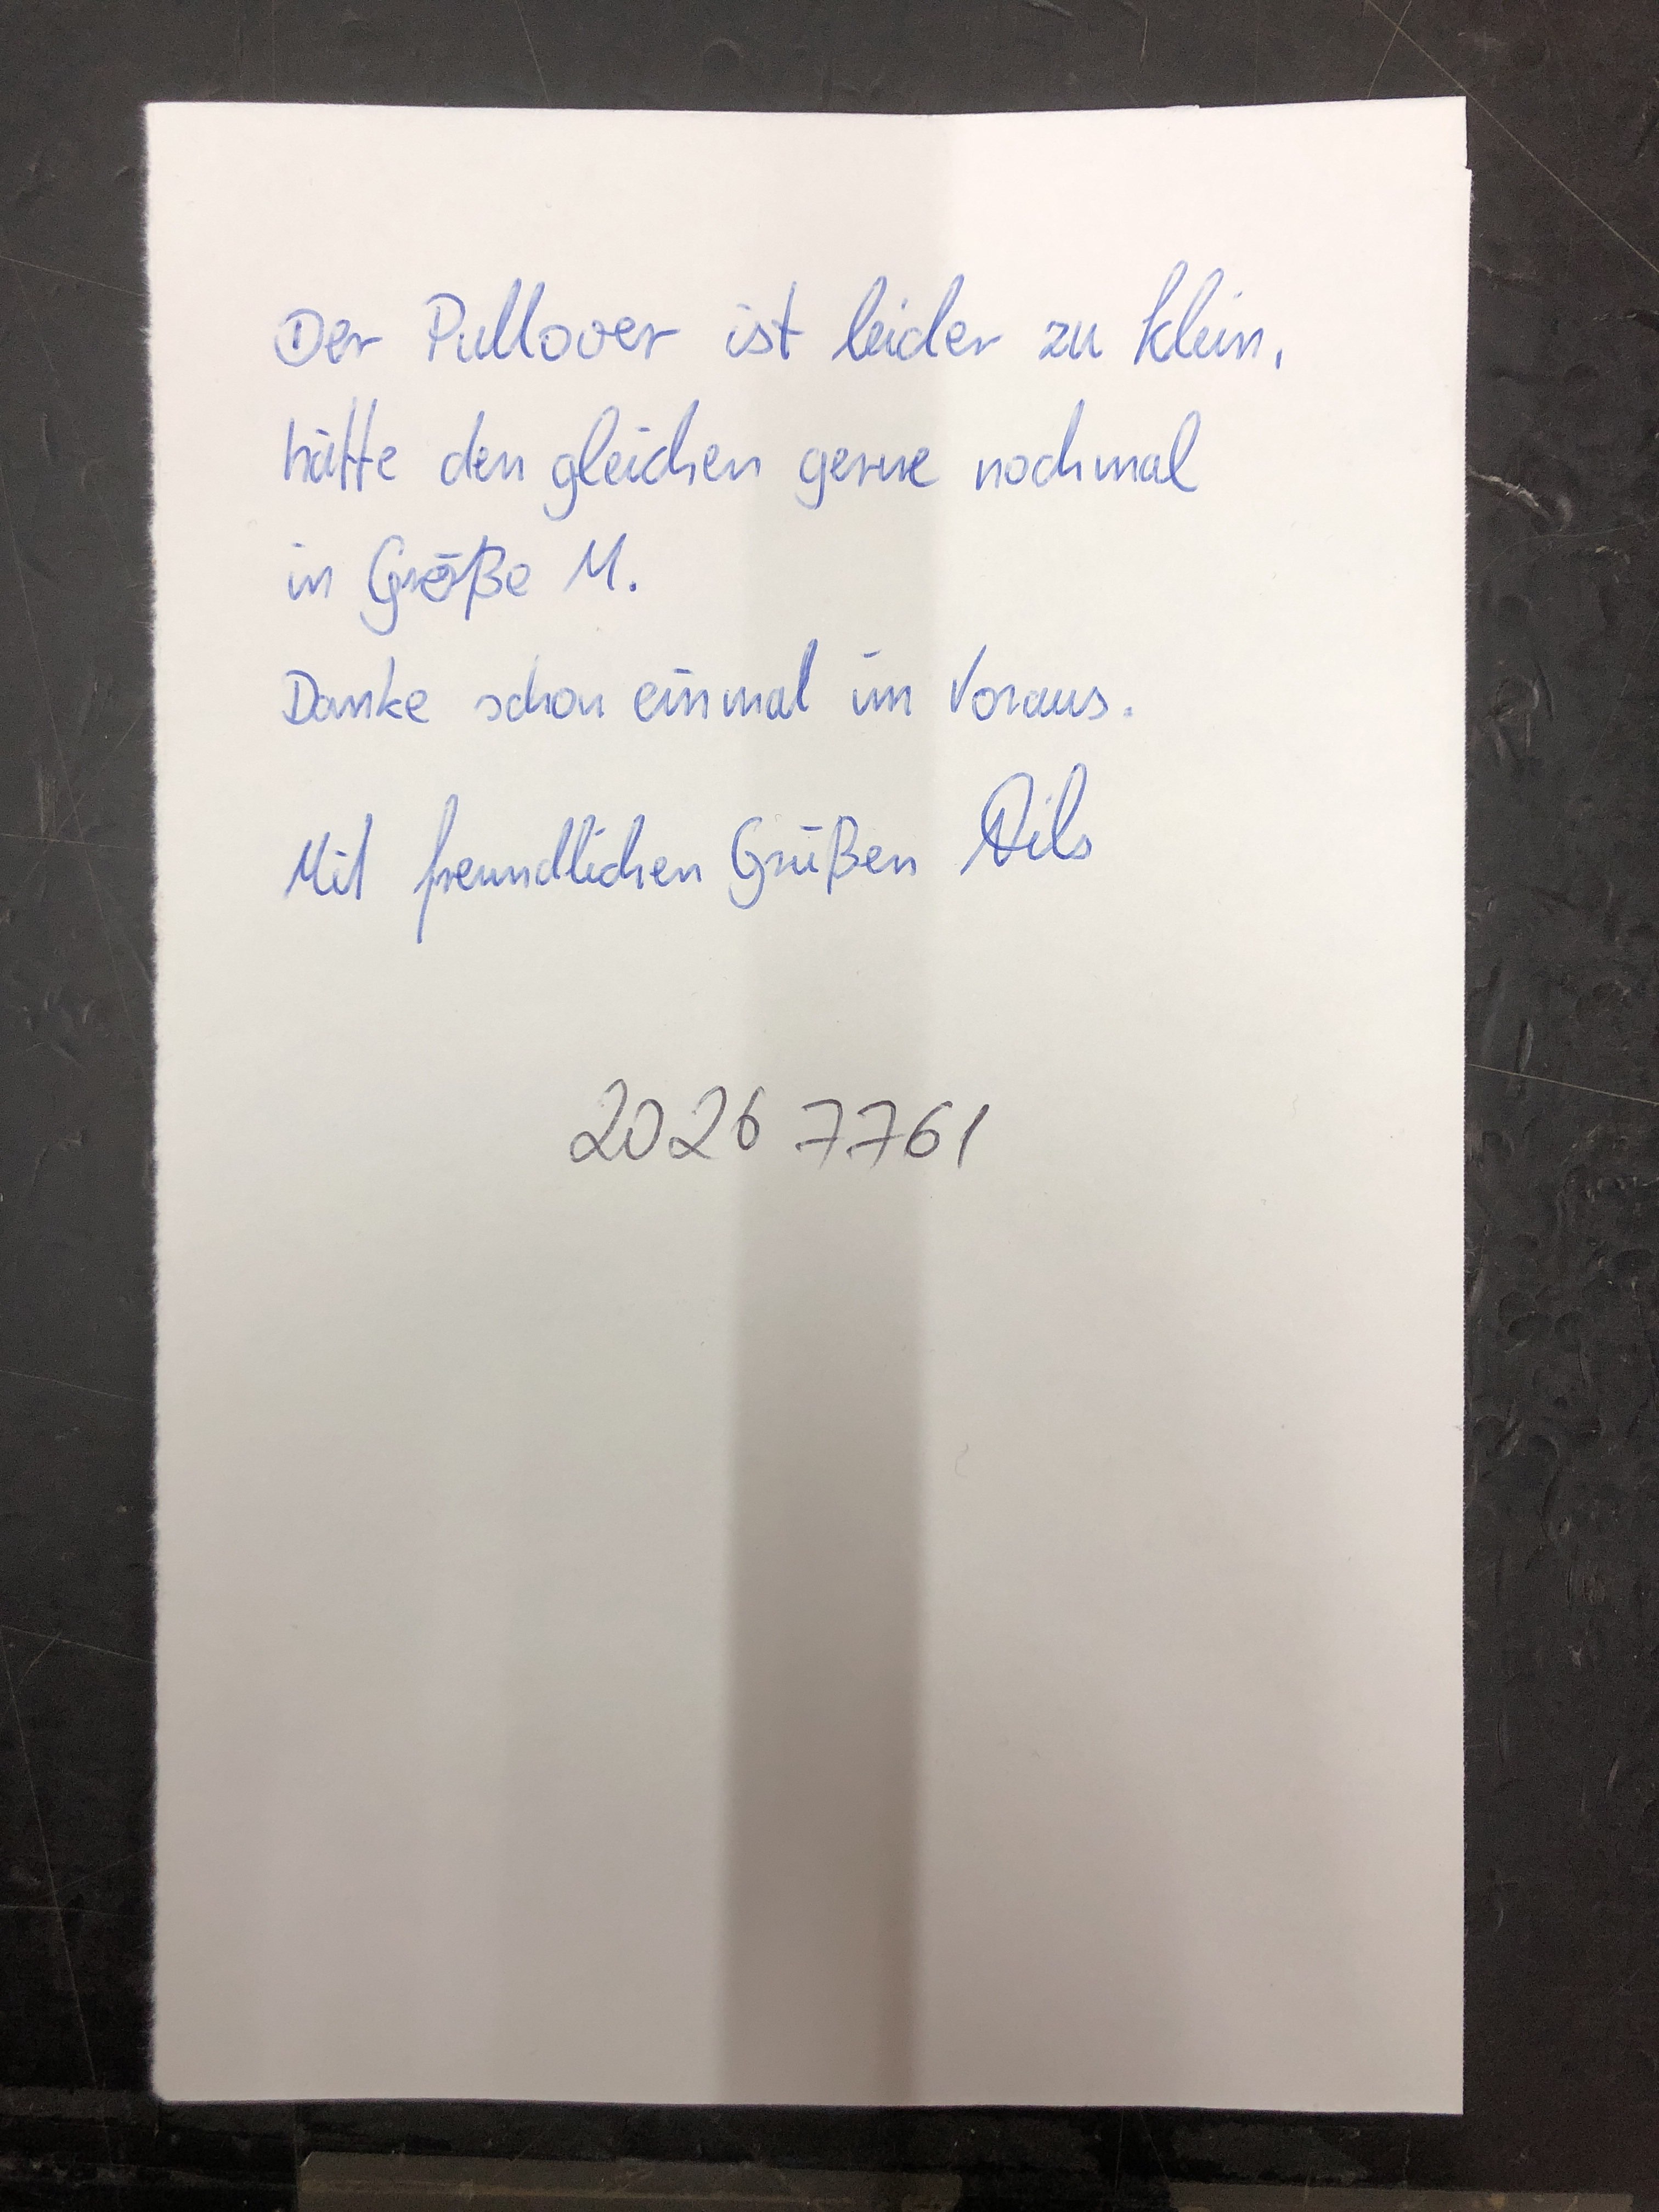 Der Pullover ist leider zu klein,
hätte den gleichen gerne nochmal
in Größe M.
Danke schon einmal im Voraus.
Mit freundlichen Grüßen Nils
2026 7761